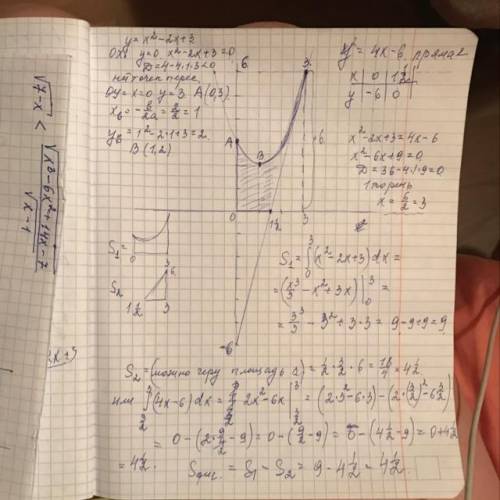 y = x² - 2x + 3
OX y = 0 x² - 2x + 3 = 0
D = 4 - 4·1·3 < 0
нет точек перес
OY = x = 0 y = 3 A(0,3)
xв = -b/2a = 2/2 = 1
yв = 1² - 2·1 + 3 = 2
B(1,2)
y = 4x - 6 прямая
x 0 1½
y -6 0
x² - 2x + 3 = 4x - 6
x² - 6x + 9 = 0
D = 36 - 4·1·9 = 0
1 корень
x = 6/2 = 3
6
A
B
3
6
0
1½
3
-6
S₁ =
0 3
S₂
6
1½ 3
S₁ = ∫₀³ (x² - 2x + 3) dx =
= (x³/3 - x² + 3x) |₀³ =
= 3³/3 - 3² + 3·3 = 9 - 9 + 9 = 9
S₂ = (можно через площадь Δ) = ½·3/2·6 = 18/4 = 4½
или ∫ (4x - 6) dx = 2x² - 6x | = (2·3² - 6·3) - (2·(3/2)² - 6·3/2)
= 0 - (2·9/4 - 9) = 0 - (9/2 - 9) = 0 - (4½ - 9) = 0 + 4½
= 4½. Sфиг = S₁ - S₂ = 9 - 4½ = 4½.
√7-x < √x³ - 6x² + 14x - 7
√x - 1